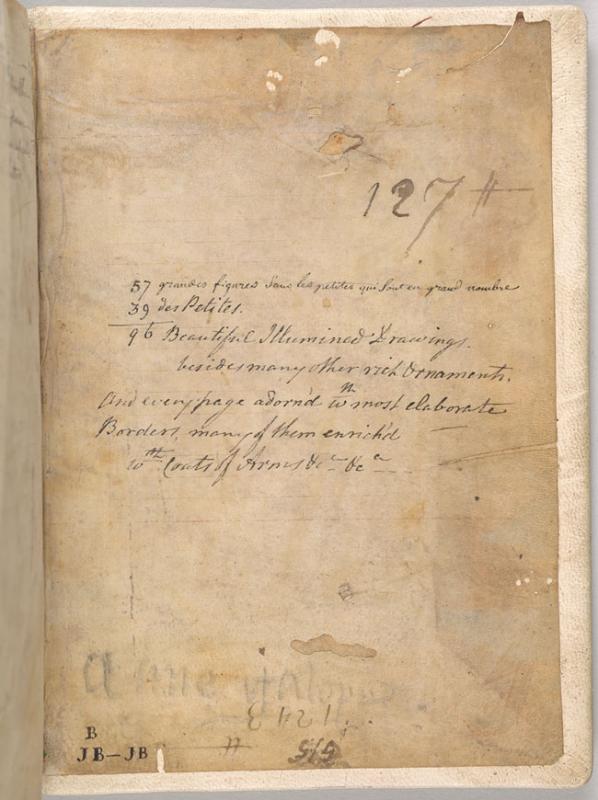 127 #
57 grandes figures sans les petites qui sont en grand nombre
39 des Petites.
96 Beautiful Illumined Drawings.
besides many other rich Ornaments.
And every page adorn'd wth most elaborate
Borders, many of them enrich'd
wth Coats of Arms &ca &ca
1243
B
JB—JB